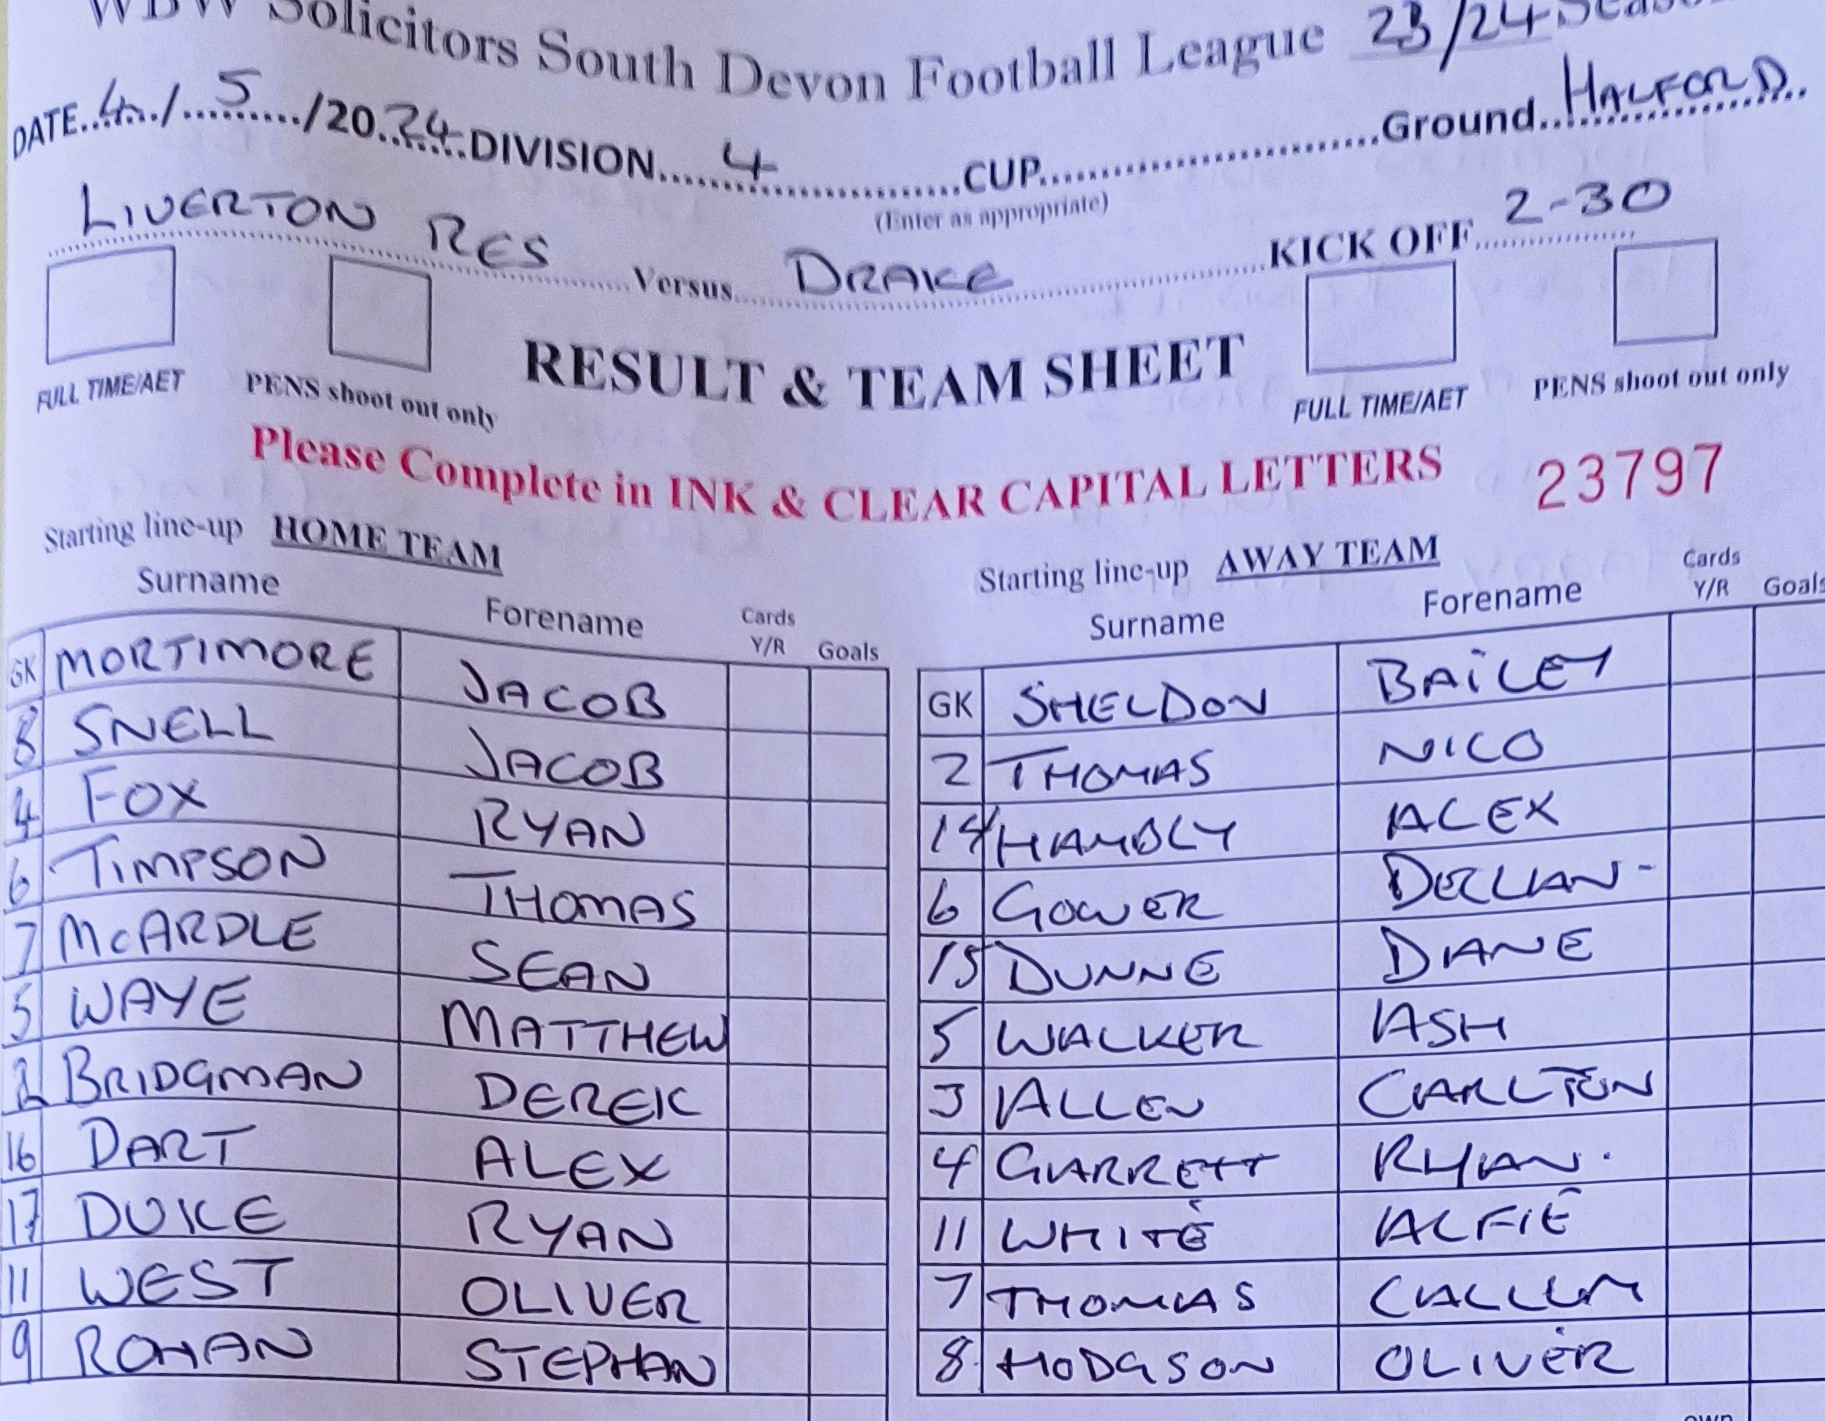 WBW Solicitors South Devon Football League 23/24 Season
DATE 4 / 5 /20 24 DIVISION 4 CUP Ground HALFORD
(Enter as appropriate)
LIVERTON RES Versus DRAKE KICK OFF 2-30
FULL TIME/AET PENS shoot out only RESULT & TEAM SHEET FULL TIME/AET PENS shoot out only
Please Complete in INK & CLEAR CAPITAL LETTERS 23797
Starting line-up HOME TEAM
Surname Forename Cards Y/R Goals
GK MORTIMORE JACOB
SNELL JACOB
4 FOX RYAN
6 TIMPSON THOMAS
7 McARDLE SEAN
5 WAYE MATTHEW
2 BRIDGMAN DEREK
16 DART ALEX
17 DUKE RYAN
11 WEST OLIVER
9 ROHAN STEPHAN
Starting line-up AWAY TEAM
Surname Forename Cards Y/R Goals
GK SHELDON BAILEY
2 THOMAS NICO
14 HAMBLY ALEX
6 GOWER DECLAN
15 DUNNE DIANE
5 WALKER ASH
3 ALLEN CARLTON
4 GARRETT RYAN.
11 WHITE ALFIE
7 THOMAS CALLUM
8 HODGSON OLIVER
own